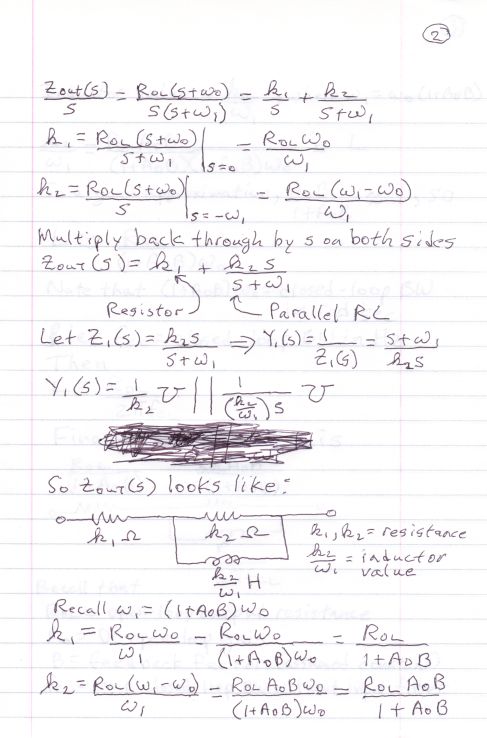 2
Zout(s)/s = ROL(s+ω0)/s(s+ω1) = k1/s + k2/s+ω1
k1 = ROL(s+ω0)/s+ω1 |s=0 = ROLω0/ω1
k2 = ROL(s+ω0)/s |s=-ω1 = ROL(ω1-ω0)/ω1
Multiply back through by s on both sides
Zout(s) = k1 + k2s/s+ω1
Resistor Parallel RL
Let Z1(s) = k2s/s+ω1 ⇒ Y1(s) = 1/Z1(s) = s+ω1/k2s
Y1(s) = 1/k2 ℧ || 1/(k2/ω1)s ℧
So Zout(s) looks like:
k1 Ω k2 Ω k1, k2 = resistance
k2/ω1 H k2/ω1 = inductor value
Recall ω1 = (1+A0B)ω0
k1 = ROLω0/ω1 = ROLω0/(1+A0B)ω0 = ROL/1+A0B
k2 = ROL(ω1-ω0)/ω1 = ROL A0Bω0/(1+A0B)ω0 = ROL A0B/1+A0B